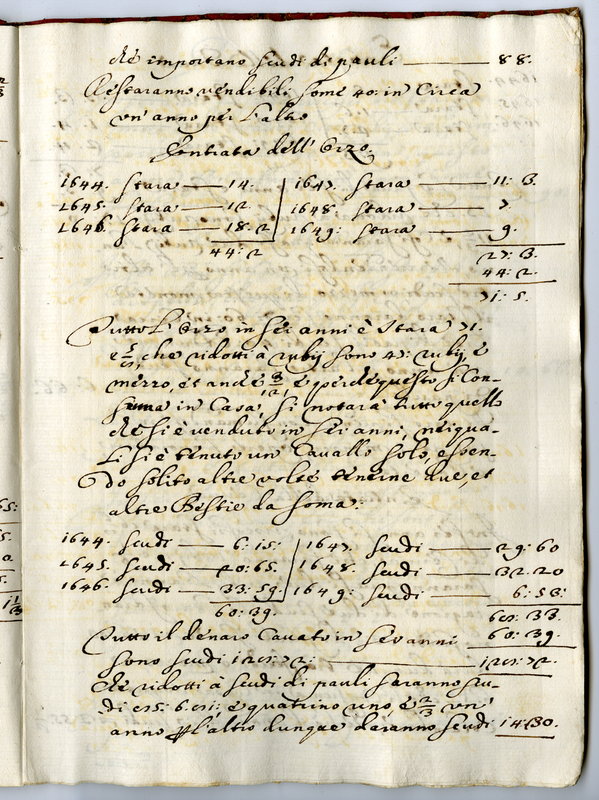 che importano scudi di pauli —— 88.
Restaranno vendibili some 40: in Circa
un' anno per l'altro
Entrata dell' Orzo.
1644. Stara — 14: 1647. Stara — 11: 3.
1645. Stara — 12 1648. Stara — 7.
1646. Stara — 18. 2 1649: Stara — 9.
44: 2 27: 3.
44: 2.
71: 5.
Tutto l' Orzo in sei anni è Stara 71.
e che ridotti à rubij sono 47: rubij, e
mezzo, et anche e perche questo si Con-
suma in Casa, si notarà tutto quello
che si è venduto in sei anni, nei qua-
li si è tenuto un' Cavallo solo, essen-
do solito altre volte tenerne due, et
altre Bestie da soma:
1644. scudi — 6: 15: 1647. scudi — 29: 60
1645. scudi — 20: 65. 1648. scudi — 32. 20
1646. scudi — 33: 59. 1649: scudi — 6: 53:
60: 39. 68: 33.
60: 39.
Tutto il denaro Cavato in sei anni
sono scudi 128: 72: —— 128: 72.
che ridotti à scudi di pauli saranno scu-
di e quatrino uno, e 2/3 un'
anno per l'altro dunque daranno scudi 14:30.